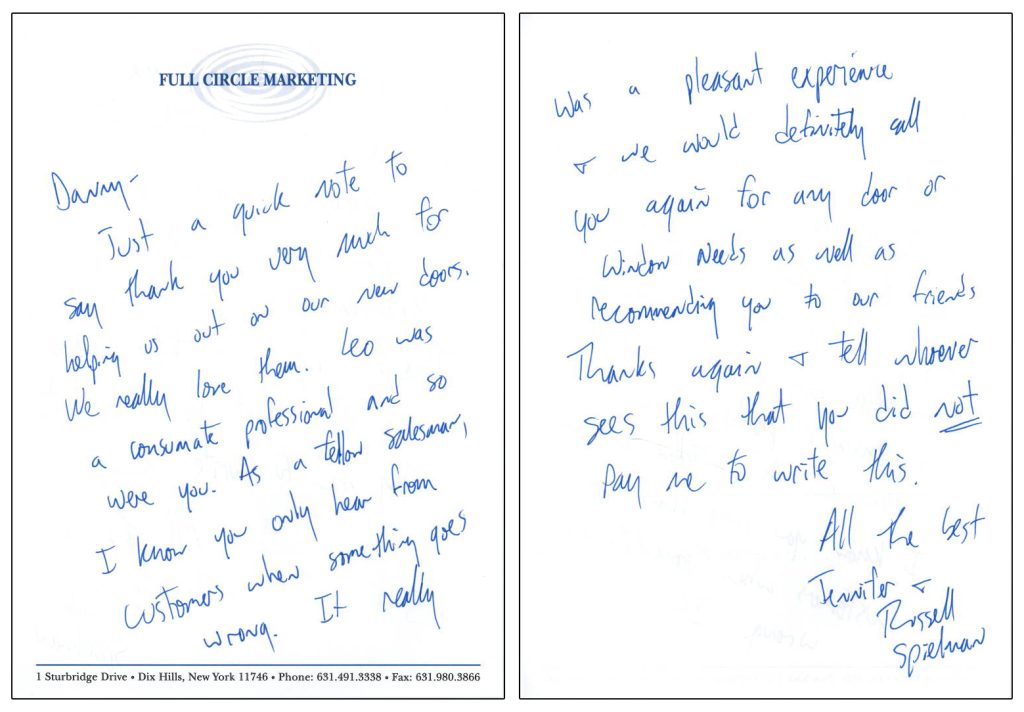 FULL CIRCLE MARKETING
Danny-
Just a quick note to
say thank you very much for
helping us out on our new doors.
We really love them. Leo was
a consumate professional and so
were you. As a fellow salesman,
I know you only hear from
customers when something goes
wrong. It really
1 Sturbridge Drive • Dix Hills, New York 11746 • Phone: 631.491.3338 • Fax: 631.980.3866
was a pleasant experience
& we would definitely call
you again for any door or
window needs as well as
recommending you to our friends
Thanks again & tell whoever
sees this that you did not
pay me to write this.
All the best
Jennifer &
Russell
Spielman